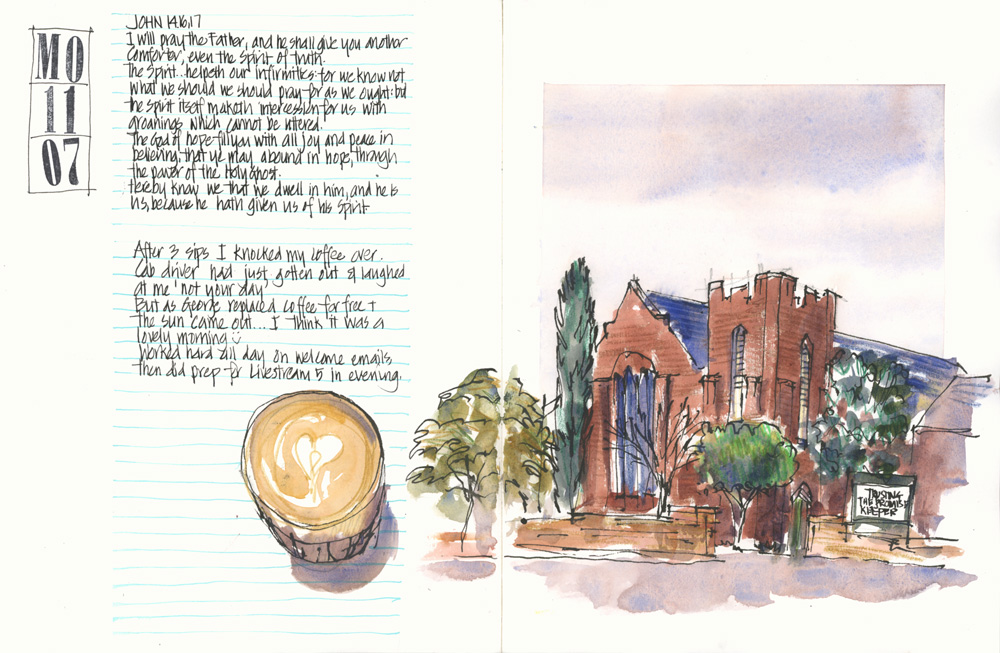 MO
11
07
JOHN 14.16,17
I will pray the Father, and he shall give you another
Comforter, even the Spirit of truth.
The Spirit...helpeth our infirmities: for we know not
what we should we should pray for as we ought: but
the Spirit itself maketh intercession for us with
groanings which cannot be uttered.
The God of hope fill you with all joy and peace in
believing, that ye may abound in hope, through
the power of the Holy Ghost.
Hereby know we that we dwell in him, and he is
us, because he hath given us of his Spirit
After 3 sips I knocked my coffee over.
Cab driver had just gotten out & laughed
at me 'not your day'
But as George replaced coffee for free +
The sun came out... I think it was a
lovely morning
Worked hard all day on welcome emails
then did prep for Livestream 5 in evening.
TRUSTING
THE PROMISE
KEEPER